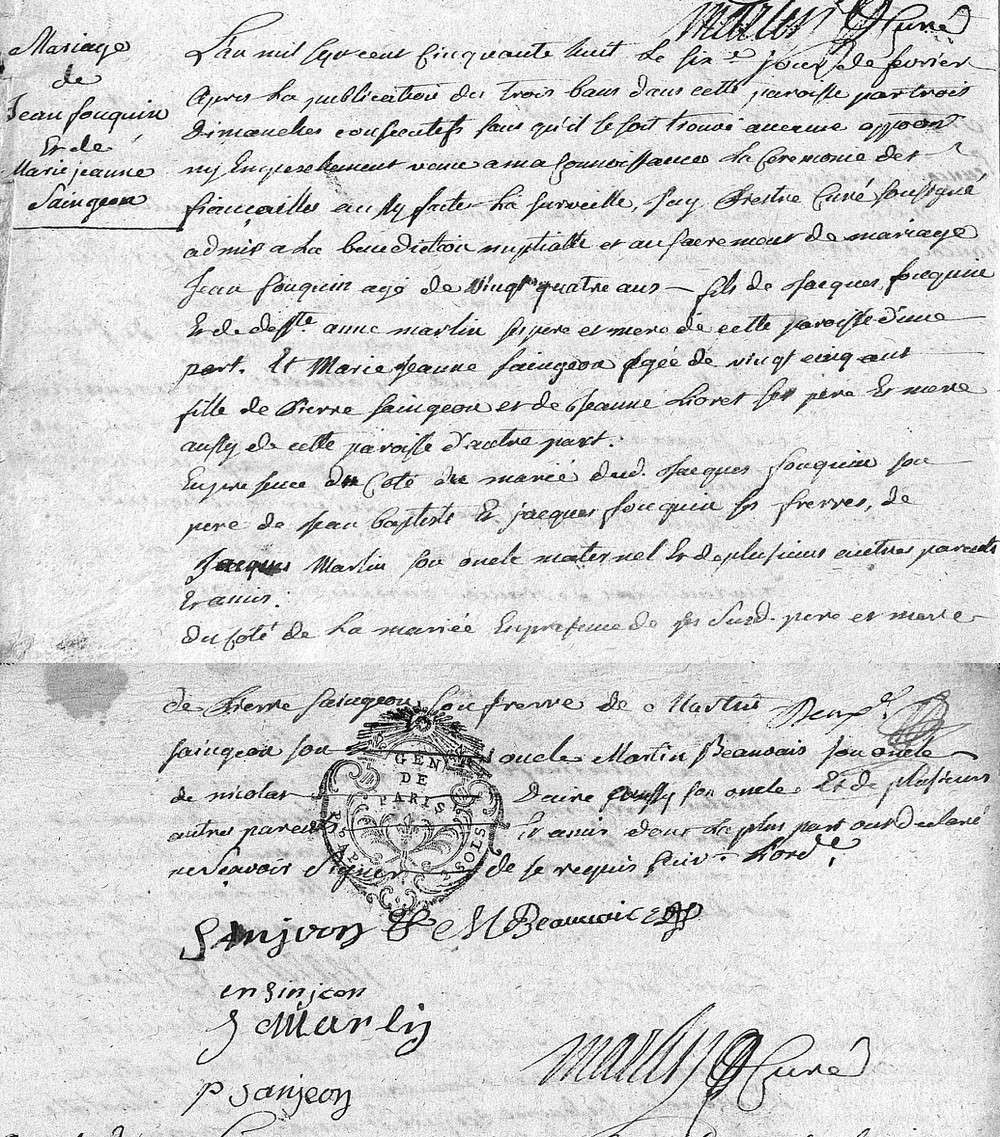 Curé
Mariage
de
Jean fouquin
Et de
Marie jeanne
Saingeon
L'an mil sept cent cinquante huit Le six.e jour de fevrier
apres La publication des trois bans dans cette paroisse par trois
Dimanches consecutifs sans qu'il se soit trouvé aucune
ny Empeschement venu a ma Connoissance La Ceremonie des
fiançailles aussy faite La surveille, Jay Prestre Curé soussigné
admis a La benediction nuptialle et au sacrement de mariage
Jean fouquin agé de vingt quatre ans – fils de Jacques fouquin
Et de deff.te anne martin ses pere et mere de cette paroisse d'une
part. Et Marie Jeanne Saingeon agée de vingt cinq ans
fille de Pierre Saingeon et de Jeanne Loret ses pere Et mere
aussy de cette paroisse d'autre part.
En presence du Coté du marié dud. Jacques fouquin son
pere de Jean baptiste Et jacques fouquin ses frerres, de
Jacques Martin son oncle maternel Et de plusieurs autres parents
Et amis.
Du Coté de La mariée En presence de ses Susd. pere et mere
de Pierre Saingeon son frerre de Martin
Saingeon son oncle Martin Beauvais son oncle
GEN
DE
PARIS
SOLS
de nicolas Daire aussy son oncle Et de plusieurs
autres parents Et amis dont La plus part ont declaré
ne Sçavoir Signer de ce requis suiv.t Lord.ce
Sanjeon M Beauvais
en sinjeon
J Martin
p sanjeon
martin Curé